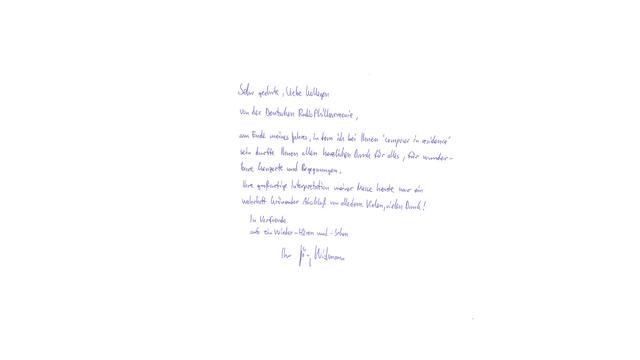 Sehr geehrte, liebe Kollegen
von der Deutschen Radio Philharmonie,
am Ende meines Jahres, in dem ich bei Ihnen "composer in residence"
sein durfte Ihnen allen herzlichen Dank für alles, für wunder-
bare Konzerte und Begegnungen.
Ihre großartige Interpretation meiner Messe heute war ein
wahrhaft krönender Abschluß von alledem. Vielen, vielen Dank!
In Vorfreude
aufs ein Wieder-Hören und -Sehen
Ihr Jörg Widmann